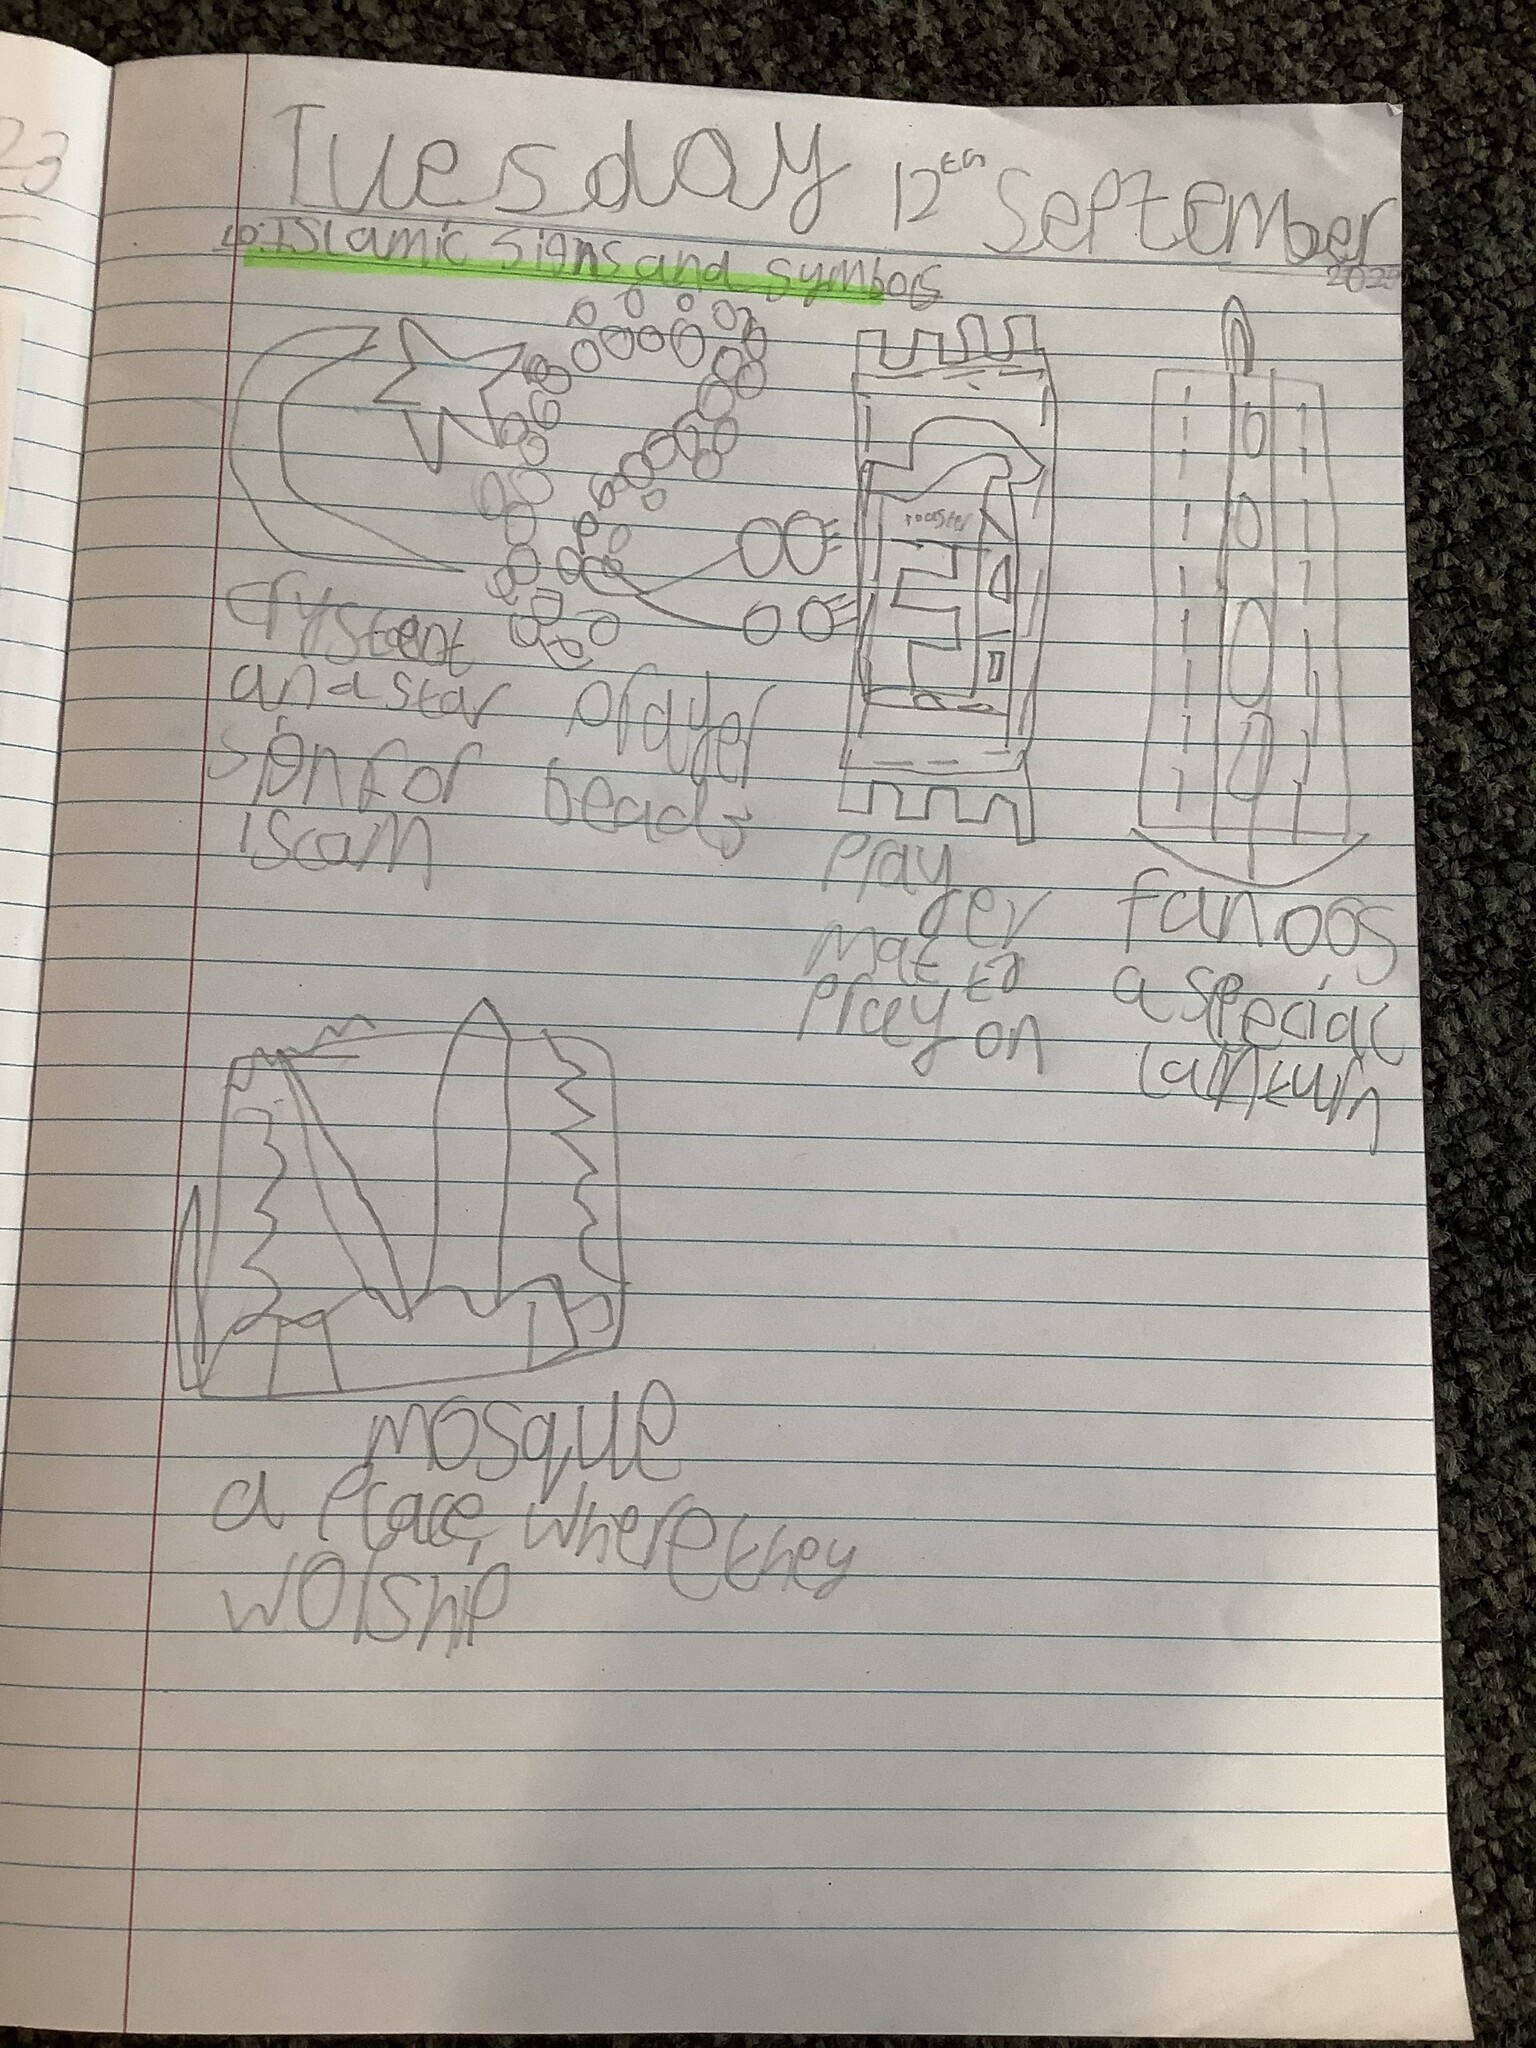 23
Tuesday 12th September
2023
LO: Islamic signs and symbols
rooster
crystent
and star
sign for
islam
prayer
beads
Pray
yer
mat to
Pray on
fanoos
a special
lanturn
mosque
a place where they
worship